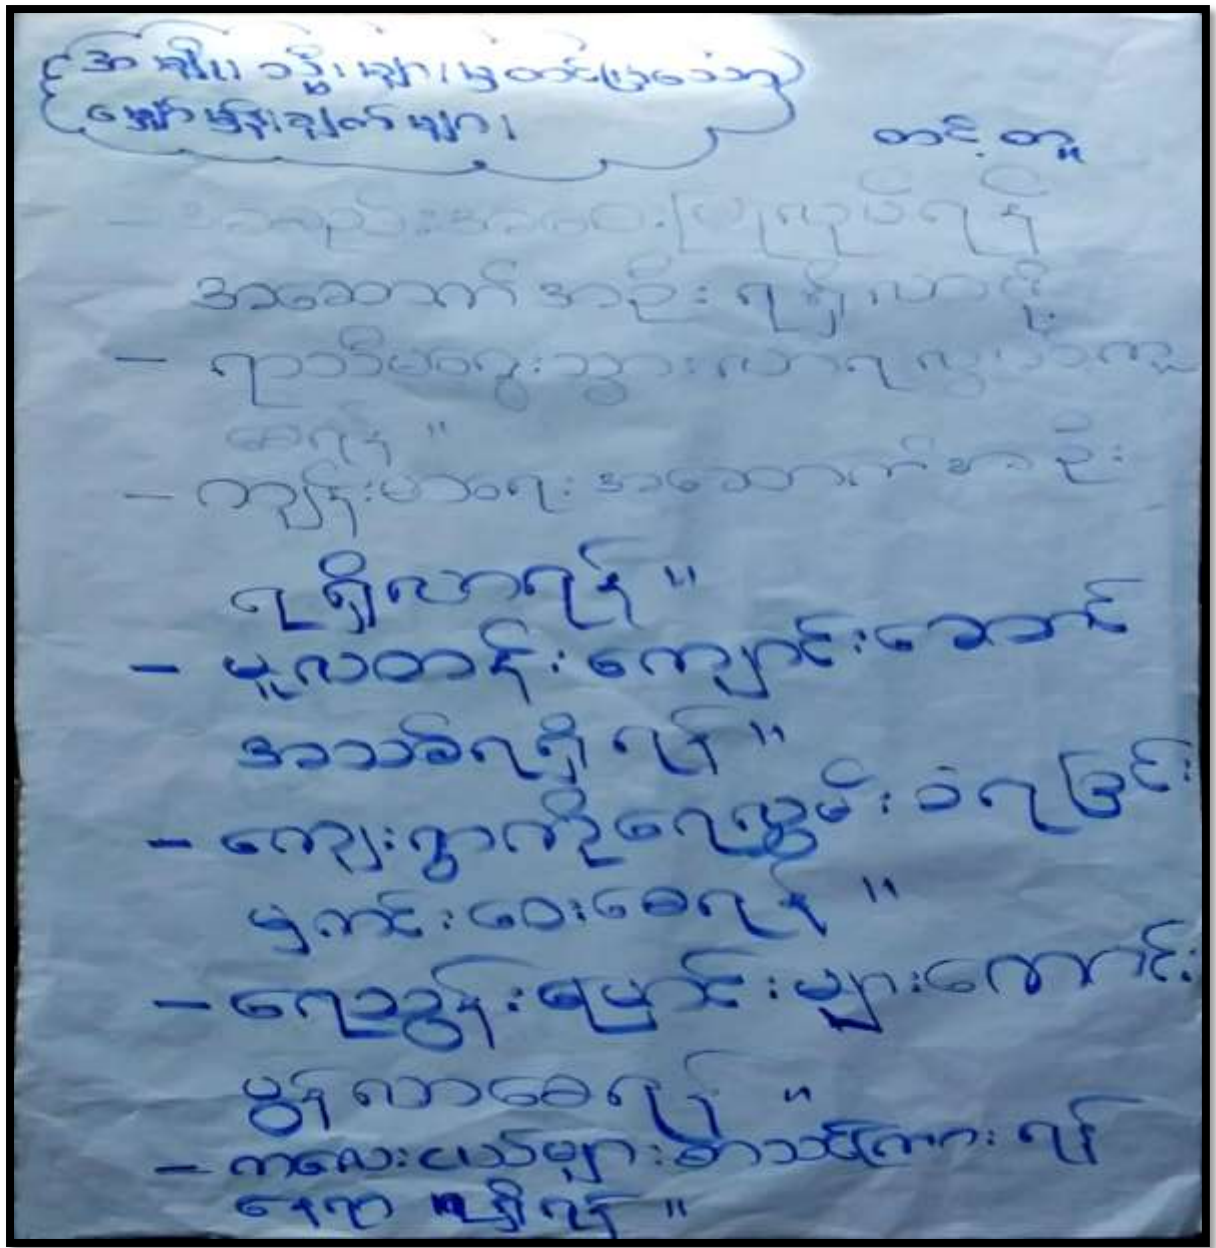 အမျိုးသမီးများမှတင်ပြသော
မျှော်မှန်းချက်များ
တင့်တူ
- စည်းဝေးပြုလုပ်ရန်
အဆောက်အဦးရရှိလာဖို့
- ရာသီမရွေးသွားလာရလွယ်ကူ
စေရန်။
- ကျန်းမာရေးအဆောက်အဦး
ရရှိလာရန်။
- မူလတန်းကျောင်းဆောင်
အသစ်ရရှိရန်။
- ကျေးရွာကိုရေလွှမ်းခံရခြင်း
မှကင်းဝေးစေရန်။
- ရေသွန်းမြောင်းများကောင်း
မွန်လာစေရန်။
- ကလေးငယ်များစာသင်ကြားရန်
နေရာရရှိရန်။